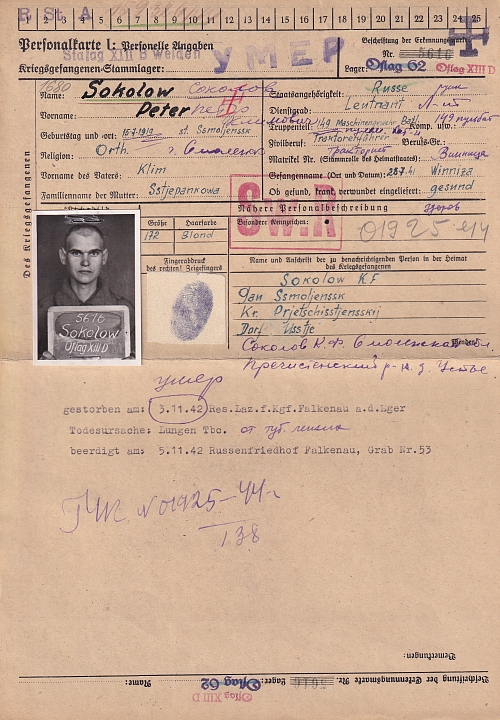 1 2 3 4 5 6 7 8 9 10 11 12 13 14 15 16 17 18 19 20 21 22 23 24 25
Personalkarte I: Personelle Angaben
Kriegsgefangenen-Stammlager: Stalag XIII B Weiden
УМЕР
Beschriftung der Erkennungsmarke
Nr. 5616
Lager: Oflag 62 Oflag XIII D
Des Kriegsgefangenen
Name: Sokolow Соколов
Vorname: Peter Петр Климович
Geburtstag und -ort: 15.7.1919 st. Ssmoljenssk
Religion: Orth. г. Смоленск
Vorname des Vaters: Klim
Familienname der Mutter: Sstjepankowa
Staatsangehörigkeit: Russe рус
Dienstgrad: Leutnant Л-нт
Truppenteil: 149 Maschinengewehr Batl. Komp. usw.: 149 пульбат
Zivilberuf: Traktorenführer Berufs-Gr.:
тракторист
Matrikel Nr. (Stammrolle des Heimatstaates): Винница
Gefangennahme (Ort und Datum): 28.7.41 Winniza
Ob gesund, krank, verwundet eingeliefert: gesund
здоров
S.W.R
Nähere Personalbeschreibung
Größe Haarfarbe Besondere Kennzeichen:
172 Blond
01925 44
Fingerabdruck
des rechten! Zeigefingers
Name und Anschrift der zu benachrichtigenden Person in der Heimat
des Kriegsgefangenen
Sokolow K.F
Gan Ssmoljenssk
Kr. Prjetschisstjensskij
Dorf Usstje
Соколов К.Ф. Смоленская
Пречистенский р-н д. Устье
5616
Sokolow
Oflag XIII D
умер
gestorben am: 3.11.42 Res.Laz.f.Kgf.Falkenau a.d.Eger
Todesursache: Lungen Tbc. от туб. легких
beerdigt am: 5.11.42 Russenfriedhof Falkenau, Grab Nr.53
N 01925-44г
138
Bemerkungen:
Beschriftung der Erkennungsmarke Nr. 5616 Lager: Oflag 62 Name:
Oflag XIII D